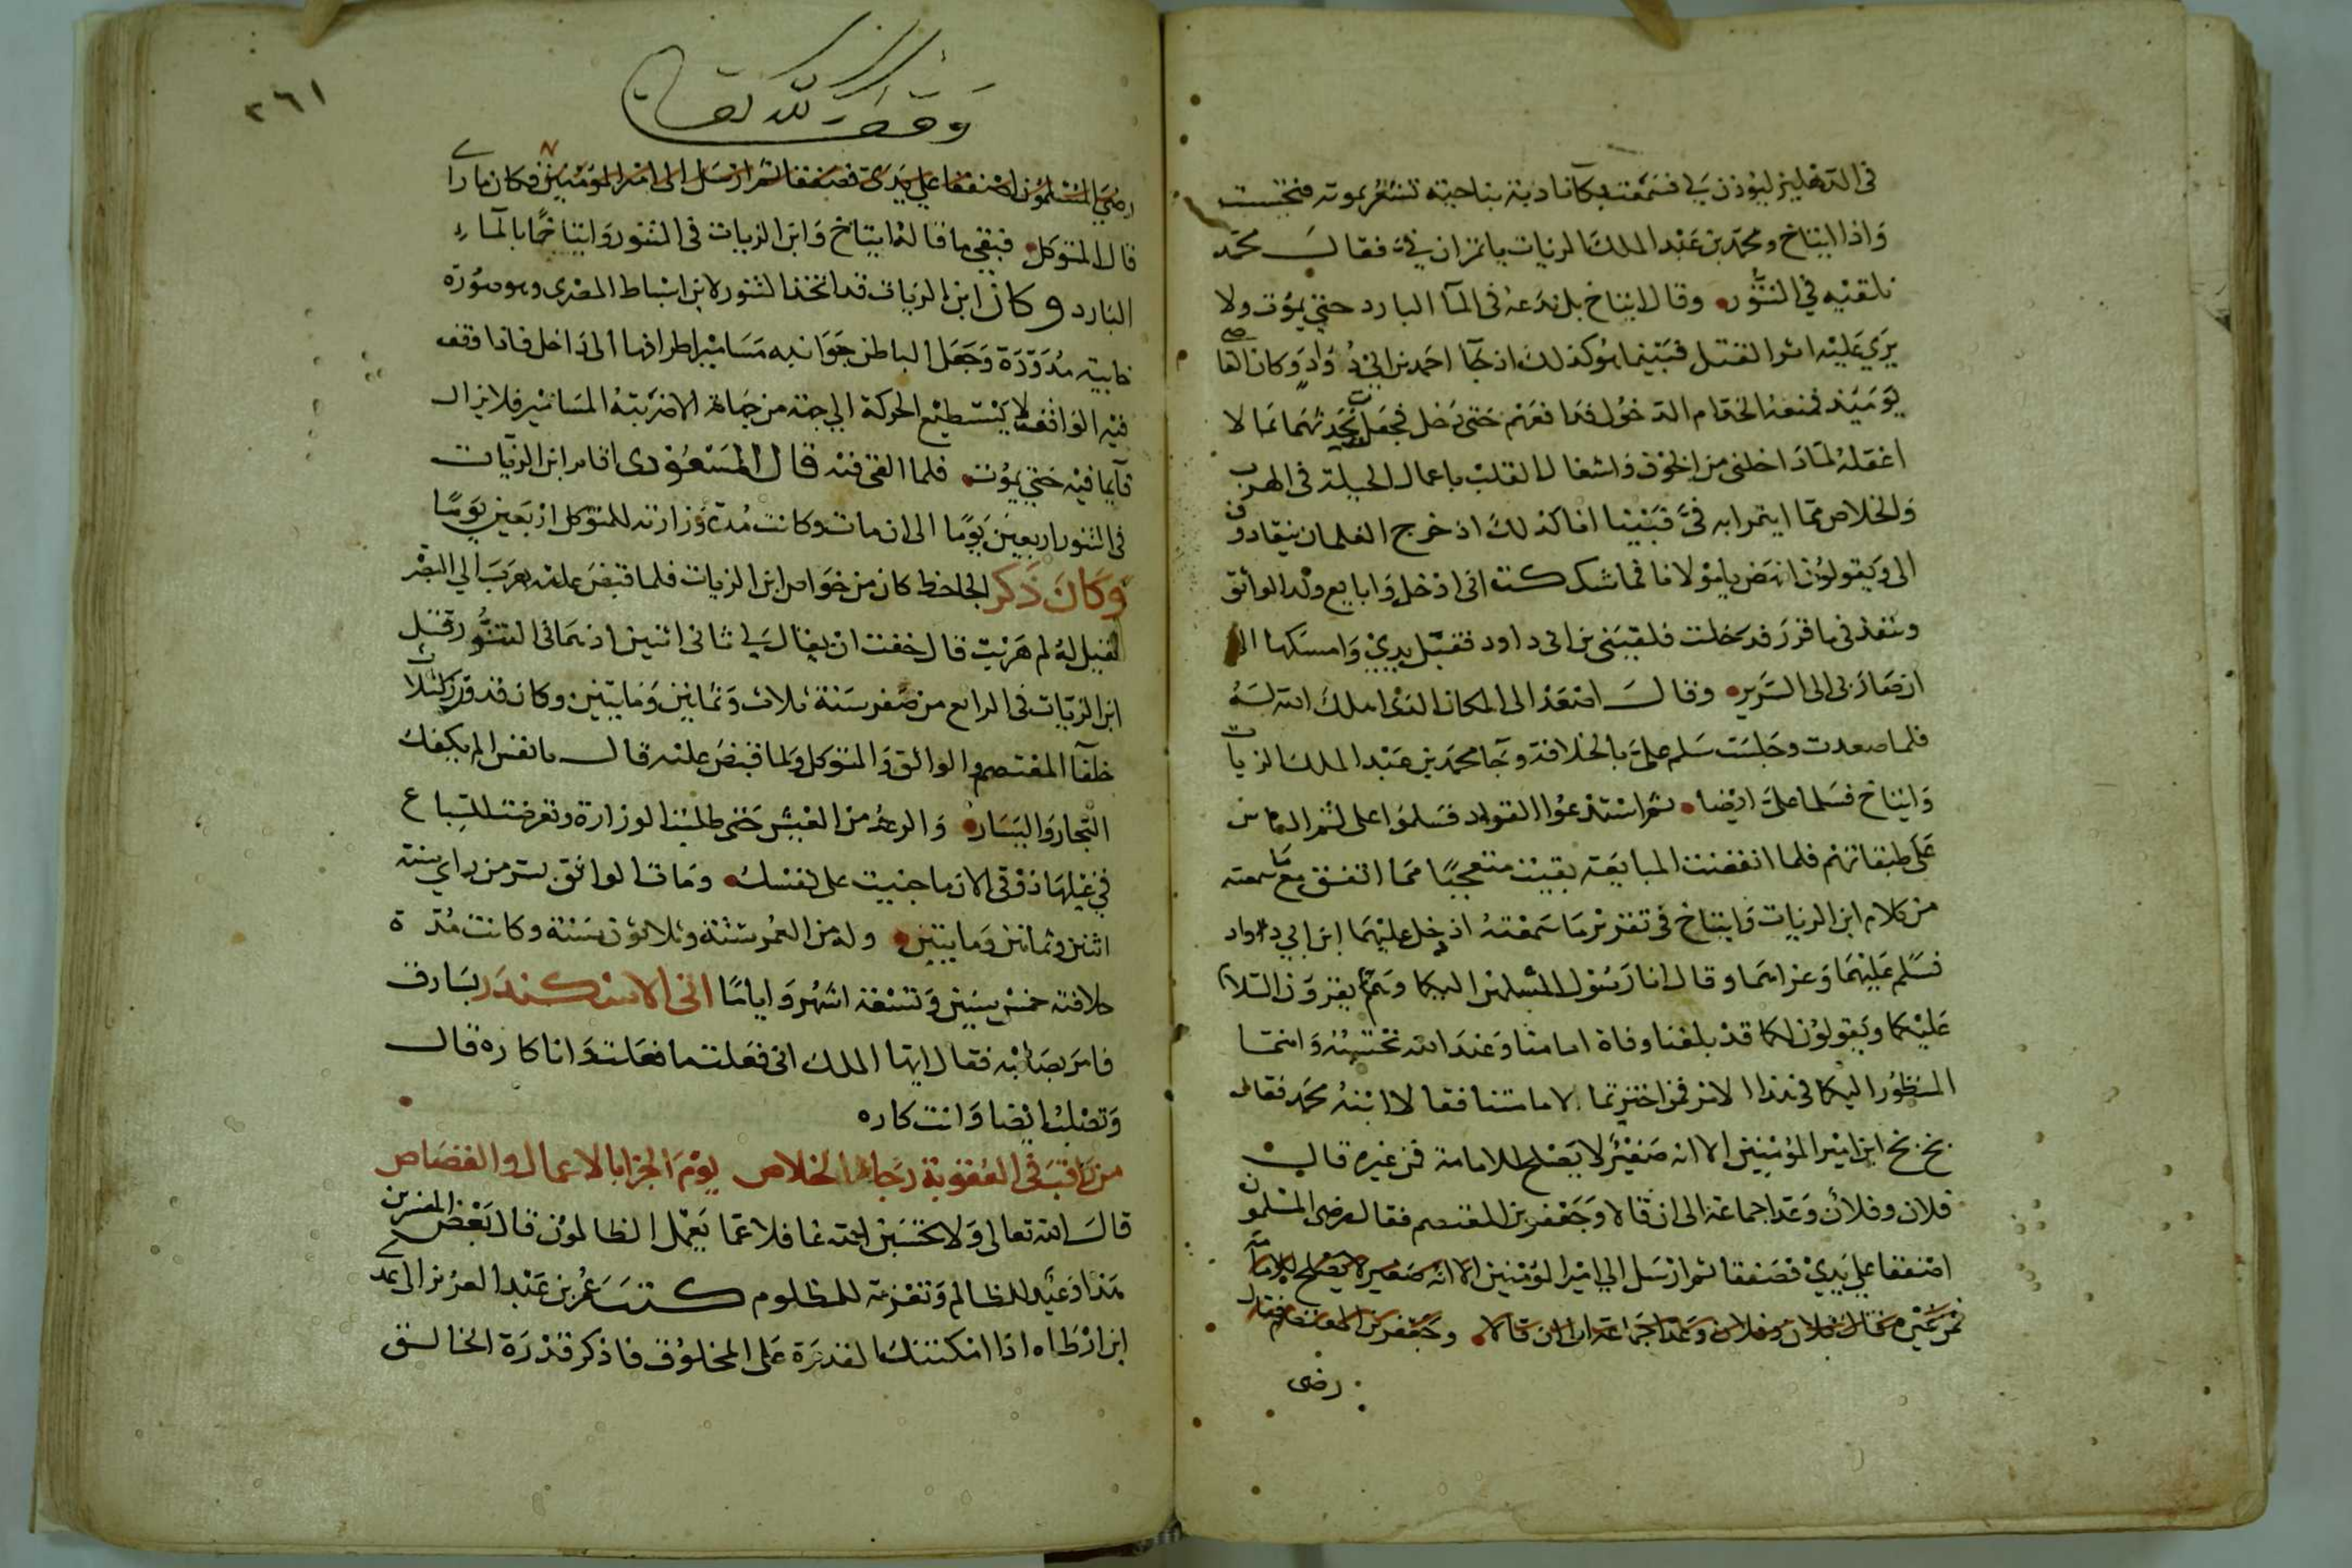 في الدهليز ليؤذن لي فسمعت بكآ نادبة بناحيته تشعر بموته فتجسست
واذا ايتاخ ومحمد بن عبد الملك الزيات ياتمران في فقال محمد
نلقيه في التنور وقال ايتاخ بل ندعه في المآ البارد حتى يموت ولا
يرى عليه اثر القتل فبينما هو كذلك اذ جآ احمد بن ابي دُ وَاد وكان القا
يومئذ فمنعه الخدام الدخول فدافعهم حتى دخل فجعل يحدثهما بما لا
اعقله لما داخلني من الخوف واشغال القلب باعمال الحيلة في الهرب
والخلاص مما ايتمرا به في فبينما انا كذلك اذ خرج الغلمان يتعادون
الي ويقولون انهض يامولانا فما شككت اني ادخل وابايع ولد الواثق
وينفذ في ما قرر فدخلت فلقيني بن ابي داود فقبل يدي وامسكها الى
ان صار بي الى السرير وقال اصعد الى المكان الذي املك الله له
فلما صعدت وجلست سلم علي بالخلافة وجآ محمد بن عبد الملك الزيات
وايتاخ فسلما علي ايضا ثم استدعوا القواد فسلموا على ثم الناس
على طبقاتهم فلما انقضت المبايعة بقيت متعجبا مما اتفق مع ما سمعته
من كلام ابن الزيات وايتاخ في تقرير ما سمعته اذ دخل عليهما ابن ابي دواد
فسلم عليهما وعزاهما وقال انا رسول المسلمين اليكما وهم يقرون السلام
عليكما ويقولون لكما قد بلغنا وفاة امامنا وعند الله نحتسبه وانتما
المنظور اليكما في هذا الامر فمن اخترتما لامامتنا فقالا ابنه محمد فقال
بخ بخ ابن امير المؤمنين الا انه صغير لا يصلح للامامة فمن غيره قال
فلان وفلان وعدا جماعة الى ان قالا وجعفر بن المعتصم فقال رضي المسلمون
اصفقا على يدي فصفقا ثم ارسل الي امير المؤمنين الا انه صغير لا يصلح للامامة
فمن غيره فقال فلان وفلان وعدا جماعة الى ان قالا وجعفر بن المعتصم فقال
رضي
٢٦١
وقف لله تعالى
رضي المسلمون اصفقا على يدي فصفقا ثم ارسل الى امير المؤمنين فكان ما راى
قال المتوكل فبقي ما قاله ايتاخ وابن الزيات في التنور وايتاخ بالمآ
البارد وكان ابن الزيات قد اتخذ التنور لابن اسباط المصري وهو صورة
خابية مدورة وجعل الباطن جوانبه مسامير اطرافها الى داخل فاذا وقف
فيه الواقف لا يستطيع الحركة الي جهة من جهاته الا ضربته المسامير فلا يزال
قآيما فيه حتى يموت فلما القي فيه قال المسعودي اقام ابن الزيات
في التنور اربعين يوما الى ان مات وكانت مدة وزارته للمتوكل اربعين يوما
وكان ذكر الجاحظ كان من خواص ابن الزيات فلما قبض عليه هرب الي البصرة
فقيل له لم هربت قال خفت ان يقال لي ثاني اثنين اذ هما في التنور وقتل
ابن الزيات في الرابع من صفر سنة ثلاث وثمانين ومايتين وكان قد وزر لثلاث
خلفآ المعتصم والوائق والمتوكل ولما قبض عليه قال يا نفس الم يكفك
التجار واليسار والرغد من العيش حتى طلبت الوزارة وتعرضت للسباع
في غيلها ذوقي الان ما جنيت على نفسك ومات الواثق بسر من راي سنة
اثنين وثمانين ومايتين وله من العمر ستة وثلاثون سنة وكانت مدة
خلافته خمس سنين وتسعة اشهر واياما اتى الاسكندر بسارق
فامر بصلبه فقال ايها الملك اني فعلت ما فعلت وانا كاره قال
وتصلب ايضا وانت كاره
من راقب في العقوبة رجاء الخلاص يوم الجزا بالاعمال والقصاص
قال الله تعالى ولا تحسبن الله غافلا عما يعمل الظالمون قال بعض المفسرين
هذا وعيد للظالم وتعزية للمظلوم كتب عمر بن عبد العزيز الى عدي
ابن ارطاه اذا امكنتك القدرة على المخلوق فاذكر قدرة الخالق